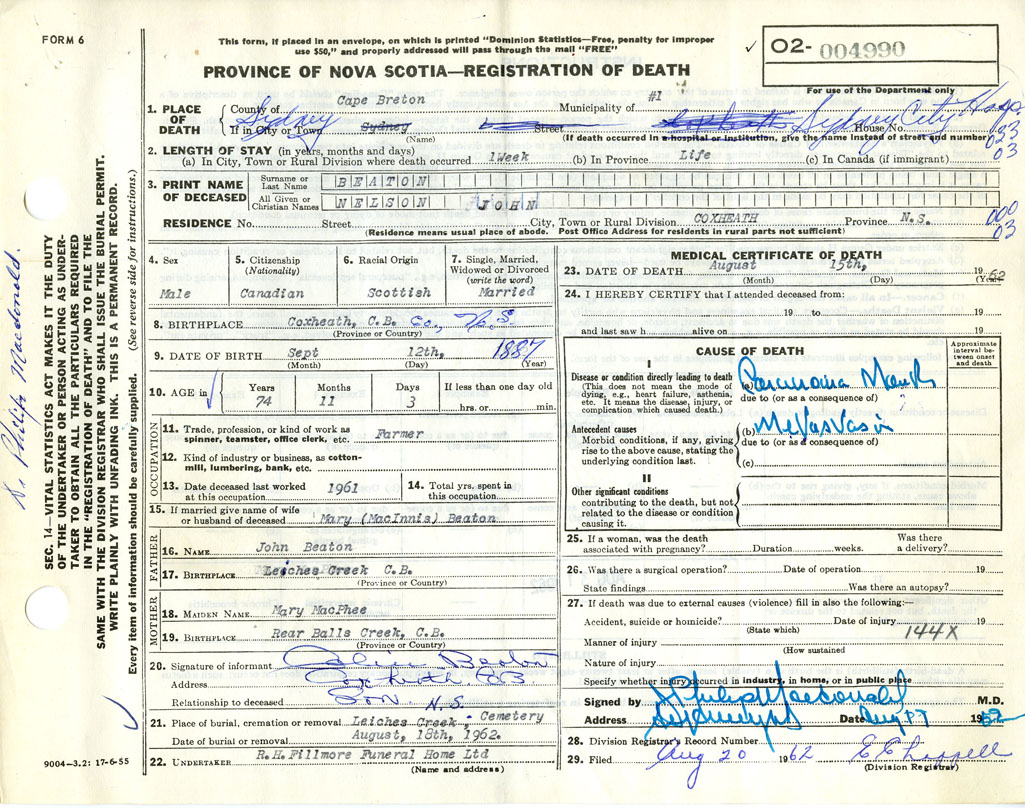 FORM 6
This form, if placed in an envelope, on which is printed "Dominion Statistics—Free, penalty for improper
use $50," and properly addressed will pass through the mail "FREE"
✓ O2- 004990
PROVINCE OF NOVA SCOTIA—REGISTRATION OF DEATH
For use of the Department only
1. PLACE OF DEATH { County of Cape Breton Municipality of #1
If in City or Town Sydney Sydney (Name) Street Sydney City Hosp House No.
(If death occurred in a hospital or institution, give the name instead of street and number)
023
03
2. LENGTH OF STAY (in years, months and days)
(a) In City, Town or Rural Division where death occurred 1Week (b) In Province Life (c) In Canada (if immigrant)
3. PRINT NAME OF DECEASED { Surname or Last Name BEATON
All Given or Christian Names NELSON JOHN
RESIDENCE No. Street City, Town or Rural Division COXHEATH Province N.S.
(Residence means usual place of abode. Post Office Address for residents in rural parts not sufficient)
000
03
4. Sex
Male
5. Citizenship (Nationality)
Canadian
6. Racial Origin
Scottish
7. Single, Married, Widowed or Divorced (write the word)
Married
8. BIRTHPLACE Coxheath, C.B. Co., N.S.
(Province or Country)
9. DATE OF BIRTH Sept 12th, 1887
(Month) (Day) (Year)
10. AGE in ✓ Years 74 Months 11 Days 3 If less than one day old hrs. or min.
OCCUPATION
11. Trade, profession, or kind of work as spinner, teamster, office clerk, etc. Farmer
12. Kind of industry or business, as cotton-mill, lumbering, bank, etc.
13. Date deceased last worked at this occupation 1961
14. Total yrs. spent in this occupation
15. If married give name of wife or husband of deceased Mary (MacInnis) Beaton
FATHER
16. NAME John Beaton
17. BIRTHPLACE Leiches Creek C.B.
(Province or Country)
MOTHER
18. MAIDEN NAME Mary MacPhee
19. BIRTHPLACE Rear Balls Creek, C.B.
(Province or Country)
20. Signature of informant Beaton
Address Coxheath. CB
Relationship to deceased Son N.S.
21. Place of burial, cremation or removal Leiches Creek, Cemetery
Date of burial or removal August, 18th, 1962.
22. UNDERTAKER R.H.Fillmore Funeral Home Ltd
(Name and address)
MEDICAL CERTIFICATE OF DEATH
23. DATE OF DEATH August 15th, 1962
(Month) (Day) (Year)
24. I HEREBY CERTIFY that I attended deceased from:
19 to 19
and last saw h alive on 19
CAUSE OF DEATH
Approximate interval between onset and death
I
Disease or condition directly leading to death (a) Carcinoma Mouth
(This does not mean the mode of dying, e.g., heart failure, asthenia, etc. It means the disease, injury, or complication which caused death.)
due to (or as a consequence of) ?
Antecedent causes (b)
Morbid conditions, if any, giving rise to the above cause, stating the underlying condition last.
due to (or as a consequence of)
(c)
II
Other significant conditions
contributing to the death, but not related to the disease or condition causing it.
25. If a woman, was the death associated with pregnancy? Duration weeks. Was there a delivery?
26. Was there a surgical operation? Date of operation 19
State findings Was there an autopsy?
27. If death was due to external causes (violence) fill in also the following:—
Accident, suicide or homicide? Date of injury 19
(State which)
144X
Manner of injury
(How sustained
Nature of injury
Specify whether injury occurred in industry, in home, or in public place
Signed by Philip Macdonald M.D.
Address Sydney NS Date Aug 17 1962
28. Division Registrar's Record Number
29. Filed Aug 20 1962
(Division Registrar)
D. Philip Macdonald.
SEC. 14—VITAL STATISTICS ACT MAKES IT THE DUTY
OF THE UNDERTAKER OR PERSON ACTING AS UNDER-
TAKER TO OBTAIN ALL THE PARTICULARS REQUIRED
IN THE "REGISTRATION OF DEATH" AND TO FILE THE
SAME WITH THE DIVISION REGISTRAR WHO SHALL ISSUE THE BURIAL PERMIT.
WRITE PLAINLY WITH UNFADING INK. THIS IS A PERMANENT RECORD.
Every item of information should be carefully supplied. (See reverse side for instructions.)
✓
9004-3.2: 17-6-55